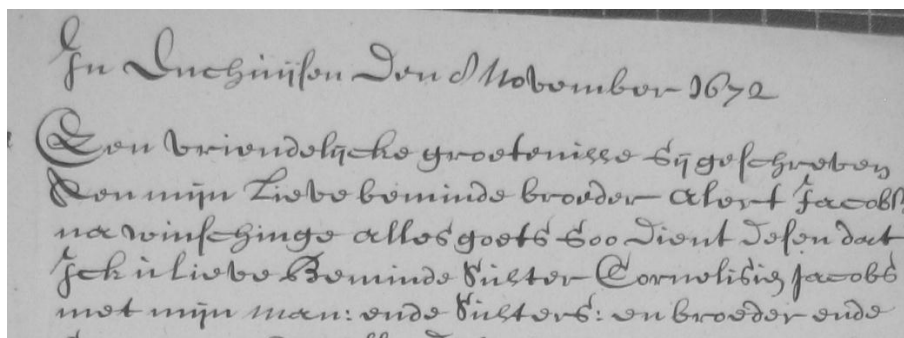 In Enchuijsen Den 8 November 1672
Een vriendelijcke groetenisse sij geschreven
Aen mijn Lieve beminde broeder Alert Jacobs
na winschinge alles goets Soo dient desen dat
Ick u lieve Beminde Suster Cornelisie Jacobs
met mijn man: ende Susters: en broeder ende